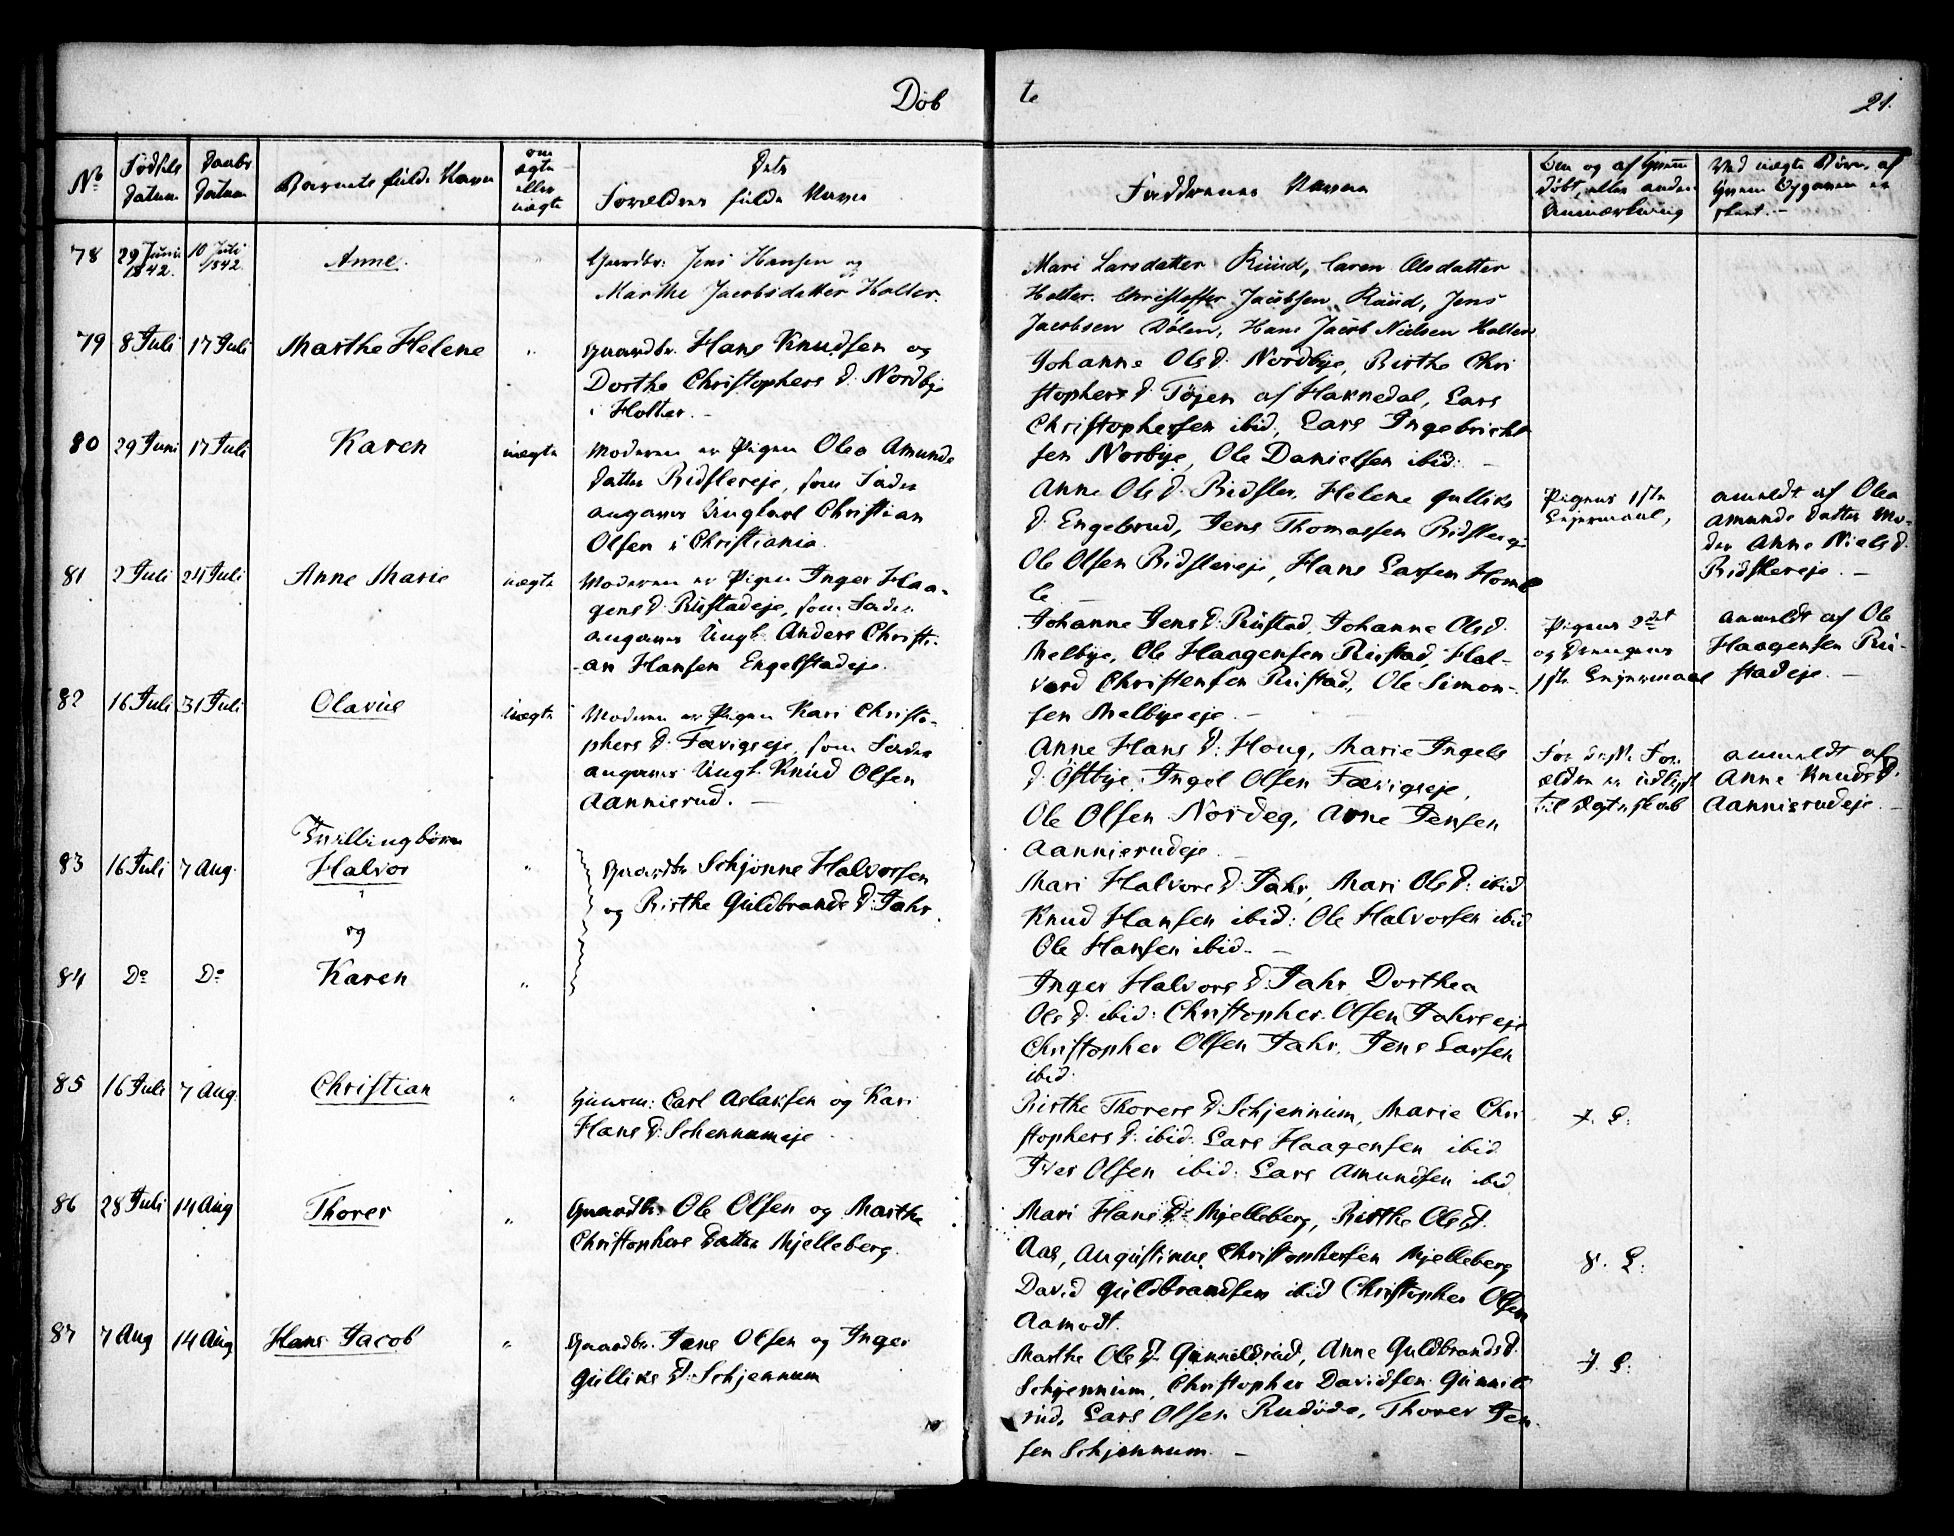 Døb
te
21.
No
Fødsels Datum
Daabs Datum
Barnets fulde Navn
om ægte eller uægte
Dets Forældres fulde Navn
Faddrenes Navne
Døbt, eller anden Anmærkning
78
29 Juni 1842.
10 Juli 1842.
Anne.
"
Gaardbr. Jens Hansen og
Marthe Jacobsdatter Holter.
Mari Larsdatter Ruud, Caren Olsdatter
Holter. Christoffer Jacobsen Ruud, Jens
Jacobsen Dølen, Hans Jacob Nielsen Holter
79
8 Juli
17 Juli
Marthe Helene
"
Gaardbr. Hans Knudsen og
Dorthe Christophers D. Nordbye
i Holter. -
Johanne Ols D. Nordbye, Birthe Chri
stophers D. Tøjen af Hakkedal, Lars
Christophersen ibid, Lars Ingebricht
sen Norbye, Ole Danielsen ibid. -
80
29 Juni
17 Juli
Karen
uægte
Moderen er Pigen Olea Amunds
datter Ridslereje, som Fader
angaves Ungkarl Christian
Olsen i Christiania.
Anne Ols D. Ridsler, Helene Gulliks
D. Engebrud, Jens Thomassen Ridslereje
Ole Olsen Ridslereje, Hans Larsen Homl
e. -
Pigens 1ste
Lejermaal,
anmeldt af Olea
Amunds datters Mo-
der Anne Niels D.
Ridslereje. -
81
2 Juli
24 Juli
Anne Marie
uægte
Moderen er Pigen Inger Haa-
gens D. Rustadeje, som Fader
angaves Ungk. Anders Christi-
an Hansen Engelstadeje.
Johanne Jens D. Rustad, Johanne Ols D.
Melbye, Ole Haagensen Rustad, Hal-
vord Christensen Rustad, Ole Simon-
sen Melbyeeje. -
Pigens 2det
og Drengens
1ste Lejermaal
anmeldt af Ole
Haagensen Ru-
stadeje. -
82
16 Juli
31 Juli
Olavus
uægte
Moderen er Pigen Kari Christo-
phers D. Favigseje, som Fader
angaves Ungk. Knud Olsen
Aannierud. -
Anne Hans D. Houg, Marie Ingels
D. Østbye, Ingel Olsen Favigseje,
Ole Olsen Nordeg, Arne Jensen
Aannierudeje. -
For disse For
ældre er udlyst
til Ægteskab
anmeldt af
Anne Knuds D.
Aannierudeje. -
Tvillingbørn
83
16 Juli
7 Aug.
Halvor
"
Gaardbr. Schjønne Halvorsen
og Birthe Guldbrands D. Fahr.
Mari Halvors D. Fahr, Mari Ols D. ibid
Knud Hansen ibid: Ole Halvorsen ibid
Ole Hansen ibid. -
og
84
Do
Do
Karen
"
Inger Halvors D. Fahr Dorthea
Ols D. ibid: Christopher Olsen Fahrseje
Christopher Olsen Fahr, Jens Larsen
ibid.
85
16 Juli
7 Aug.
Christian
"
Carl Aslaksen og Kari
Hans D. Schennumeje
Birthe Thorers D. Schjennum, Marie Chri
stophers D. ibid. Lars Haagensen ibid
Iver Olsen ibid. Lars Amundsen ibid
86
28 Juli
14 Aug
Thorer
"
Gaardbr. Ole Olsen og Marthe
Christophers Datter Mjelleberg.
Mari Hans D. Mjelleberg, Birthe Ols D.
Aas, Augustinus Christophersen Mjelleberg
David Guldbrandsen ibid Christopher Olsen
Aamodt.
87
7 Aug
14 Aug
Hans Jacob
"
Gaardbr. Jens Olsen og Inger
Gulliks D. Schjennum
Marthe Ols D. Gunnildrud, Anne Guldbrands D.
Schjennum, Christopher Davidsen Gunnild
rud, Lars Olsen Rudøde, Thorer Jen-
sen Schjennum. -